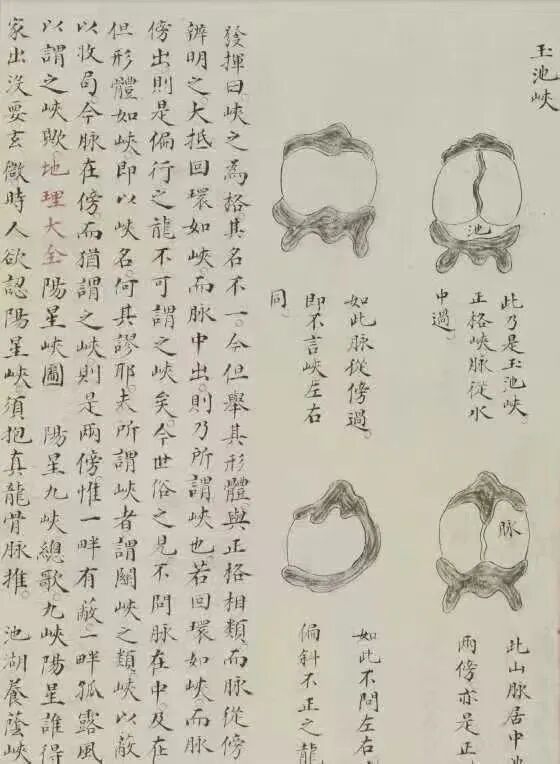 玉池峽
此乃是玉池峽。
正格峽脉從水
中過。
池
如此脉從傍過。
即不言峽左右
同。
脉
此山脉居中池
兩傍亦是正
如此不問左右
偏斜不正之龍
發揮曰。峽之為格。其名不一。今但舉其形體。與正格相類。而脉從傍
辨明之。大抵回環如峽。而脉中出。則乃所謂峽也。若回環如峽。而脉
傍出。則是偏行之龍。不可謂之峽矣。今世俗之見。不問脉在中。及在
但形體如峽。即以峽名。何其謬耶。夫所謂峽者。謂關峽之類。峽以蔽
以收局。今脉在傍。而猶謂之峽。則是兩傍惟一畔有蔽。一畔孤露。風
以謂之峽歟。地理大全陽星峽圖 陽星九峽總歌。九峽陽星誰得
家出没要玄微。時人欲認陽星峽。須抱真龍骨脉推。 池湖養蔭峽